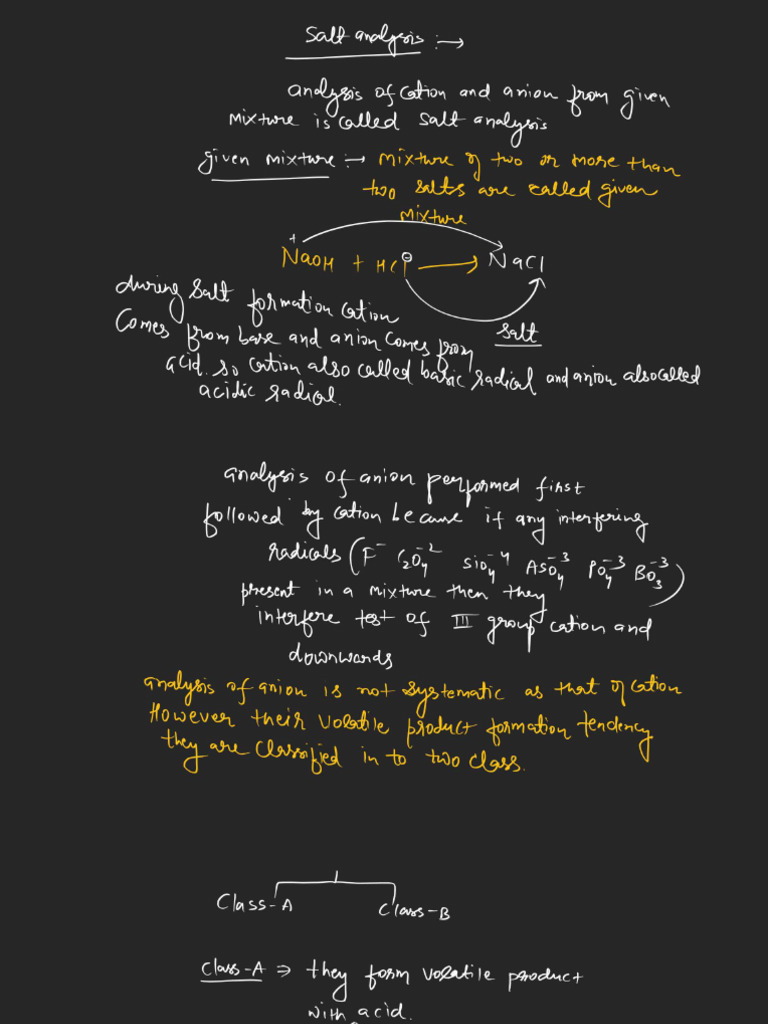 Salt analysis :→
analysis of cation and anion from given
mixture is called salt analysis
given mixture :→ mixture of two or more than
two salts are called given
mixture
+
NaOH + HCl⊖ → NaCl
during salt formation cation
Comes from base and anion comes from
salt
acid. so cation also called basic radial and anion also called
acidic radial.
analysis of anion performed first
followed by cation because if any interfering
radicals (F⁻ C₂O₄⁻² SiO₄⁻⁴ AsO₄⁻³ PO₄⁻³ BO₃⁻³)
present in a mixture then they
interfere test of III group cation and
downwards
analysis of anion is not systematic as that of cation
However their volatile product formation tendency
they are classified in to two class.
Class-A Class-B
Class-A ⇒ they form volatile product
with acid.